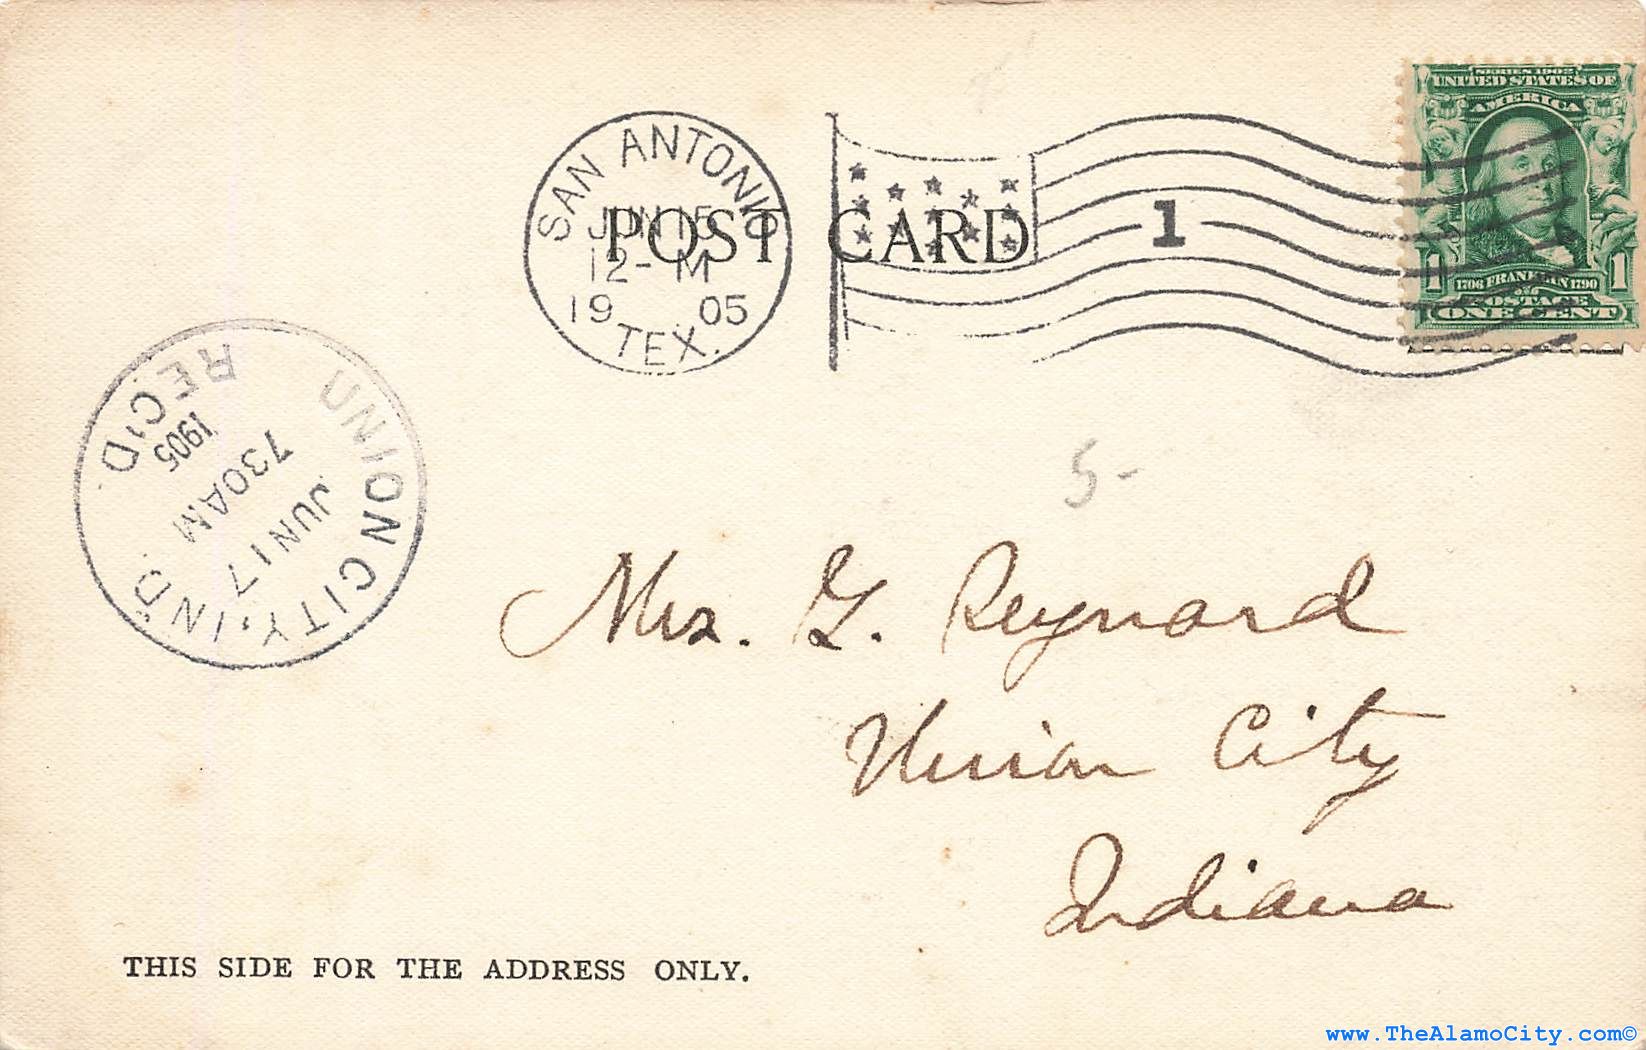 SERIES 1902
UNITED STATES OF
AMERICA
1 1706 FRANKLIN 1790 1
POSTAGE
ONE CENT
SAN ANTONIO
JUN 15
12 - M
19 05
TEX.
1
POST CARD
UNION CITY, IND.
JUN 17
730AM
1905
REC'D.
5-
Mrs. G. Reynard
Union City
Indiana
THIS SIDE FOR THE ADDRESS ONLY.
www.TheAlamoCity.com©